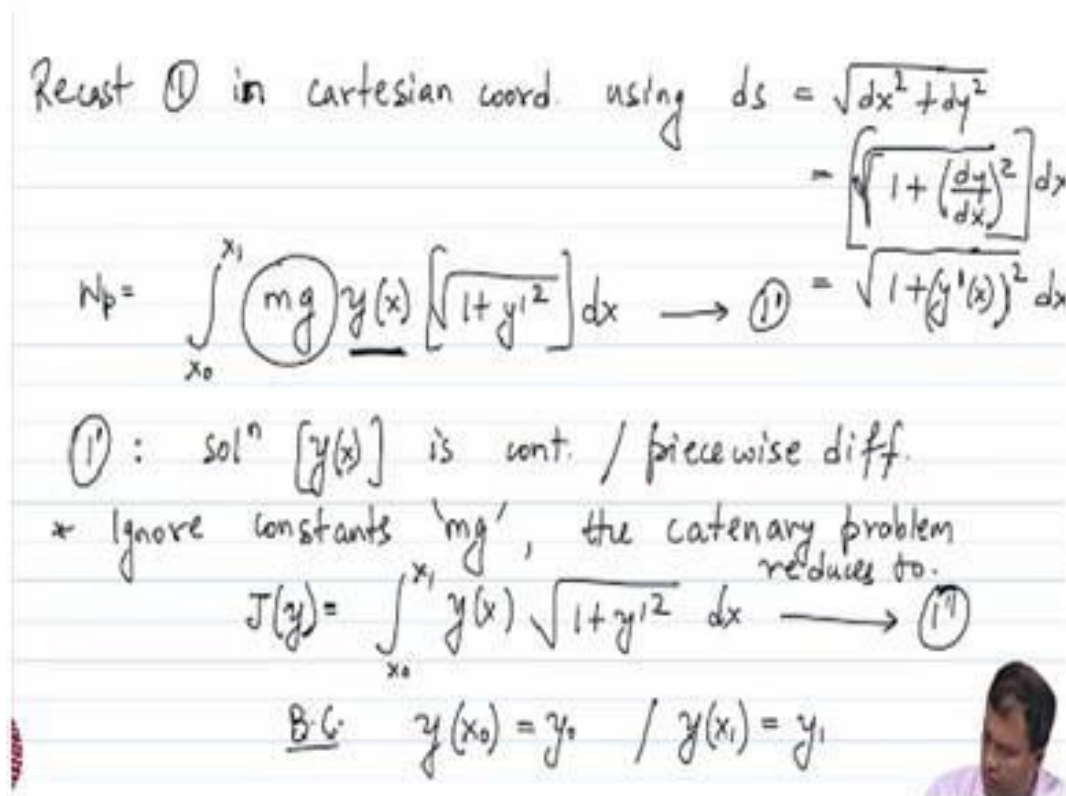 Recast ① in cartesian coord. using ds = √(dx² + dy²)
= [√(1 + (dy/dx)²)] dx
Wp = ∫_{x₀}^{x₁} mg y(x) [√(1 + y'²)] dx → ①' = √(1 + (y'(x))²) dx
①' : solⁿ [y(x)] is cont. / piecewise diff.
* Ignore constants 'mg', the catenary problem
reduces to.
J(y) = ∫_{x₀}^{x₁} y(x) √(1 + y'²) dx → ①''
B.C. y(x₀) = y₀ / y(x₁) = y₁